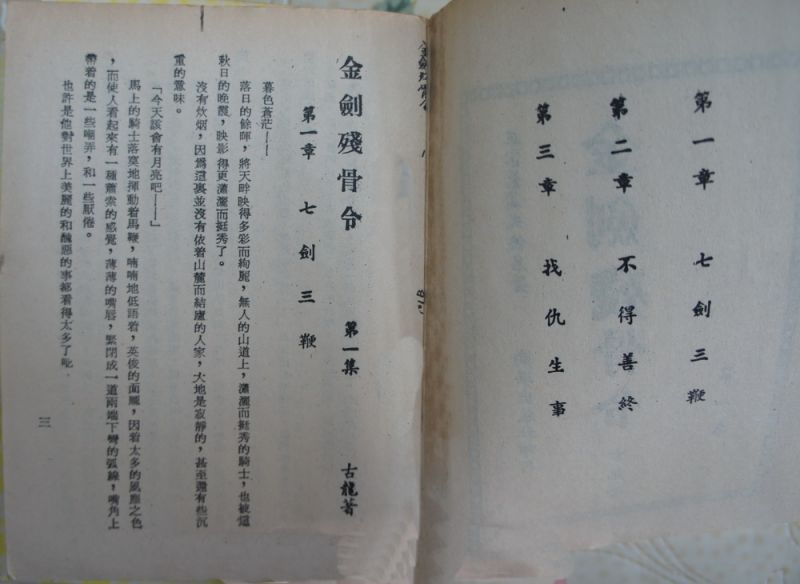 第一章　七劍三鞭
第二章　不得善終
第三章　找仇生事
金劍殘骨令　第一集　古龍著
第一章　七劍三鞭
暮色蒼茫——
落日的餘暉，將天畔映得多彩而絢麗，無人的山道上，瀟灑而挺秀的騎士，也被這
秋日的晚霞，映影得更瀟灑而挺秀了。
沒有炊烟，因爲這裏並沒有依着山麓而結廬的人家，大地是寂靜的，甚至還有些沉
重的意味。
「今天該會有月亮吧——」
馬上的騎士落寞地揮動着馬鞭，喃喃地低語着，英俊的面龐，因着太多的風塵之色
，而使人看起來有一種蕭索的感覺，薄薄的嘴唇，緊閉成一道兩端下彎的弧線，嘴角上
帶着的是一些嘲弄，和一些厭倦。
也許是他對世界上美麗的和醜惡的事都看得太多了吔
三